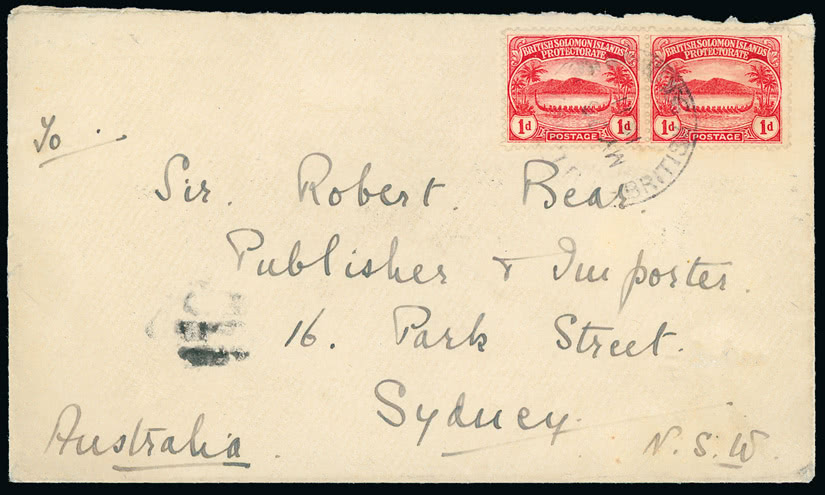 BRITISH SOLOMON ISLANDS PROTECTORATE
1d POSTAGE 1d
BRITISH SOLOMON ISLANDS PROTECTORATE
1d POSTAGE 1d
BRITIS
MY
To
Sir. Robert. Bear.
Publisher & Importer.
16. Park Street.
Sydney.
Australia.
N.S.W.